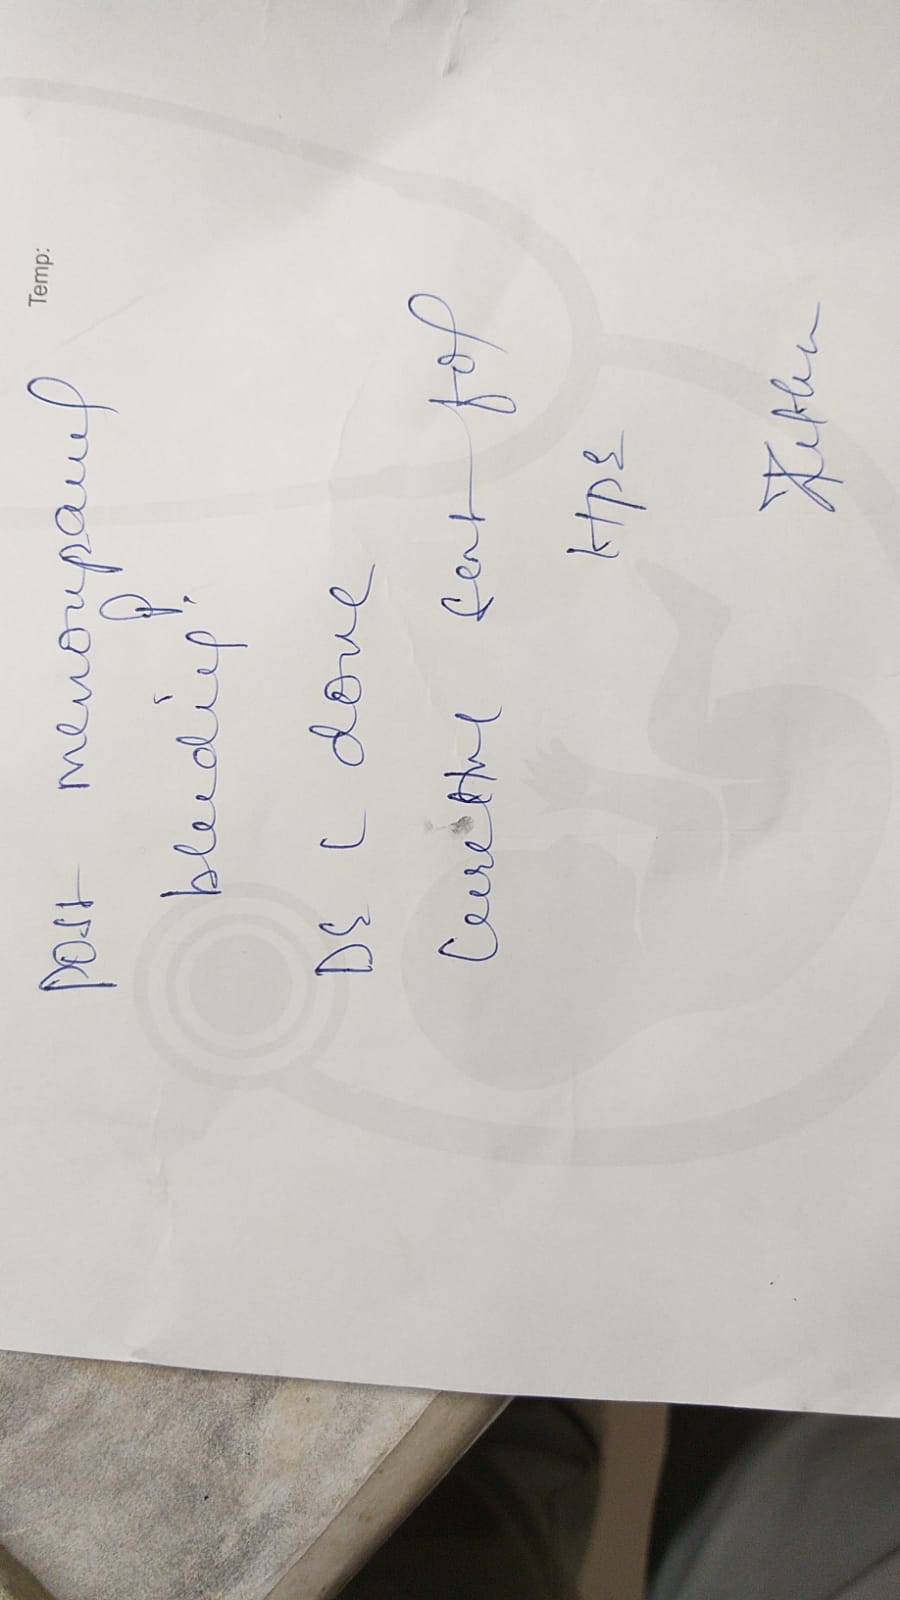 Temp:
Post menopausal
bleeding.
D & C done
Curettage sent for
HPE